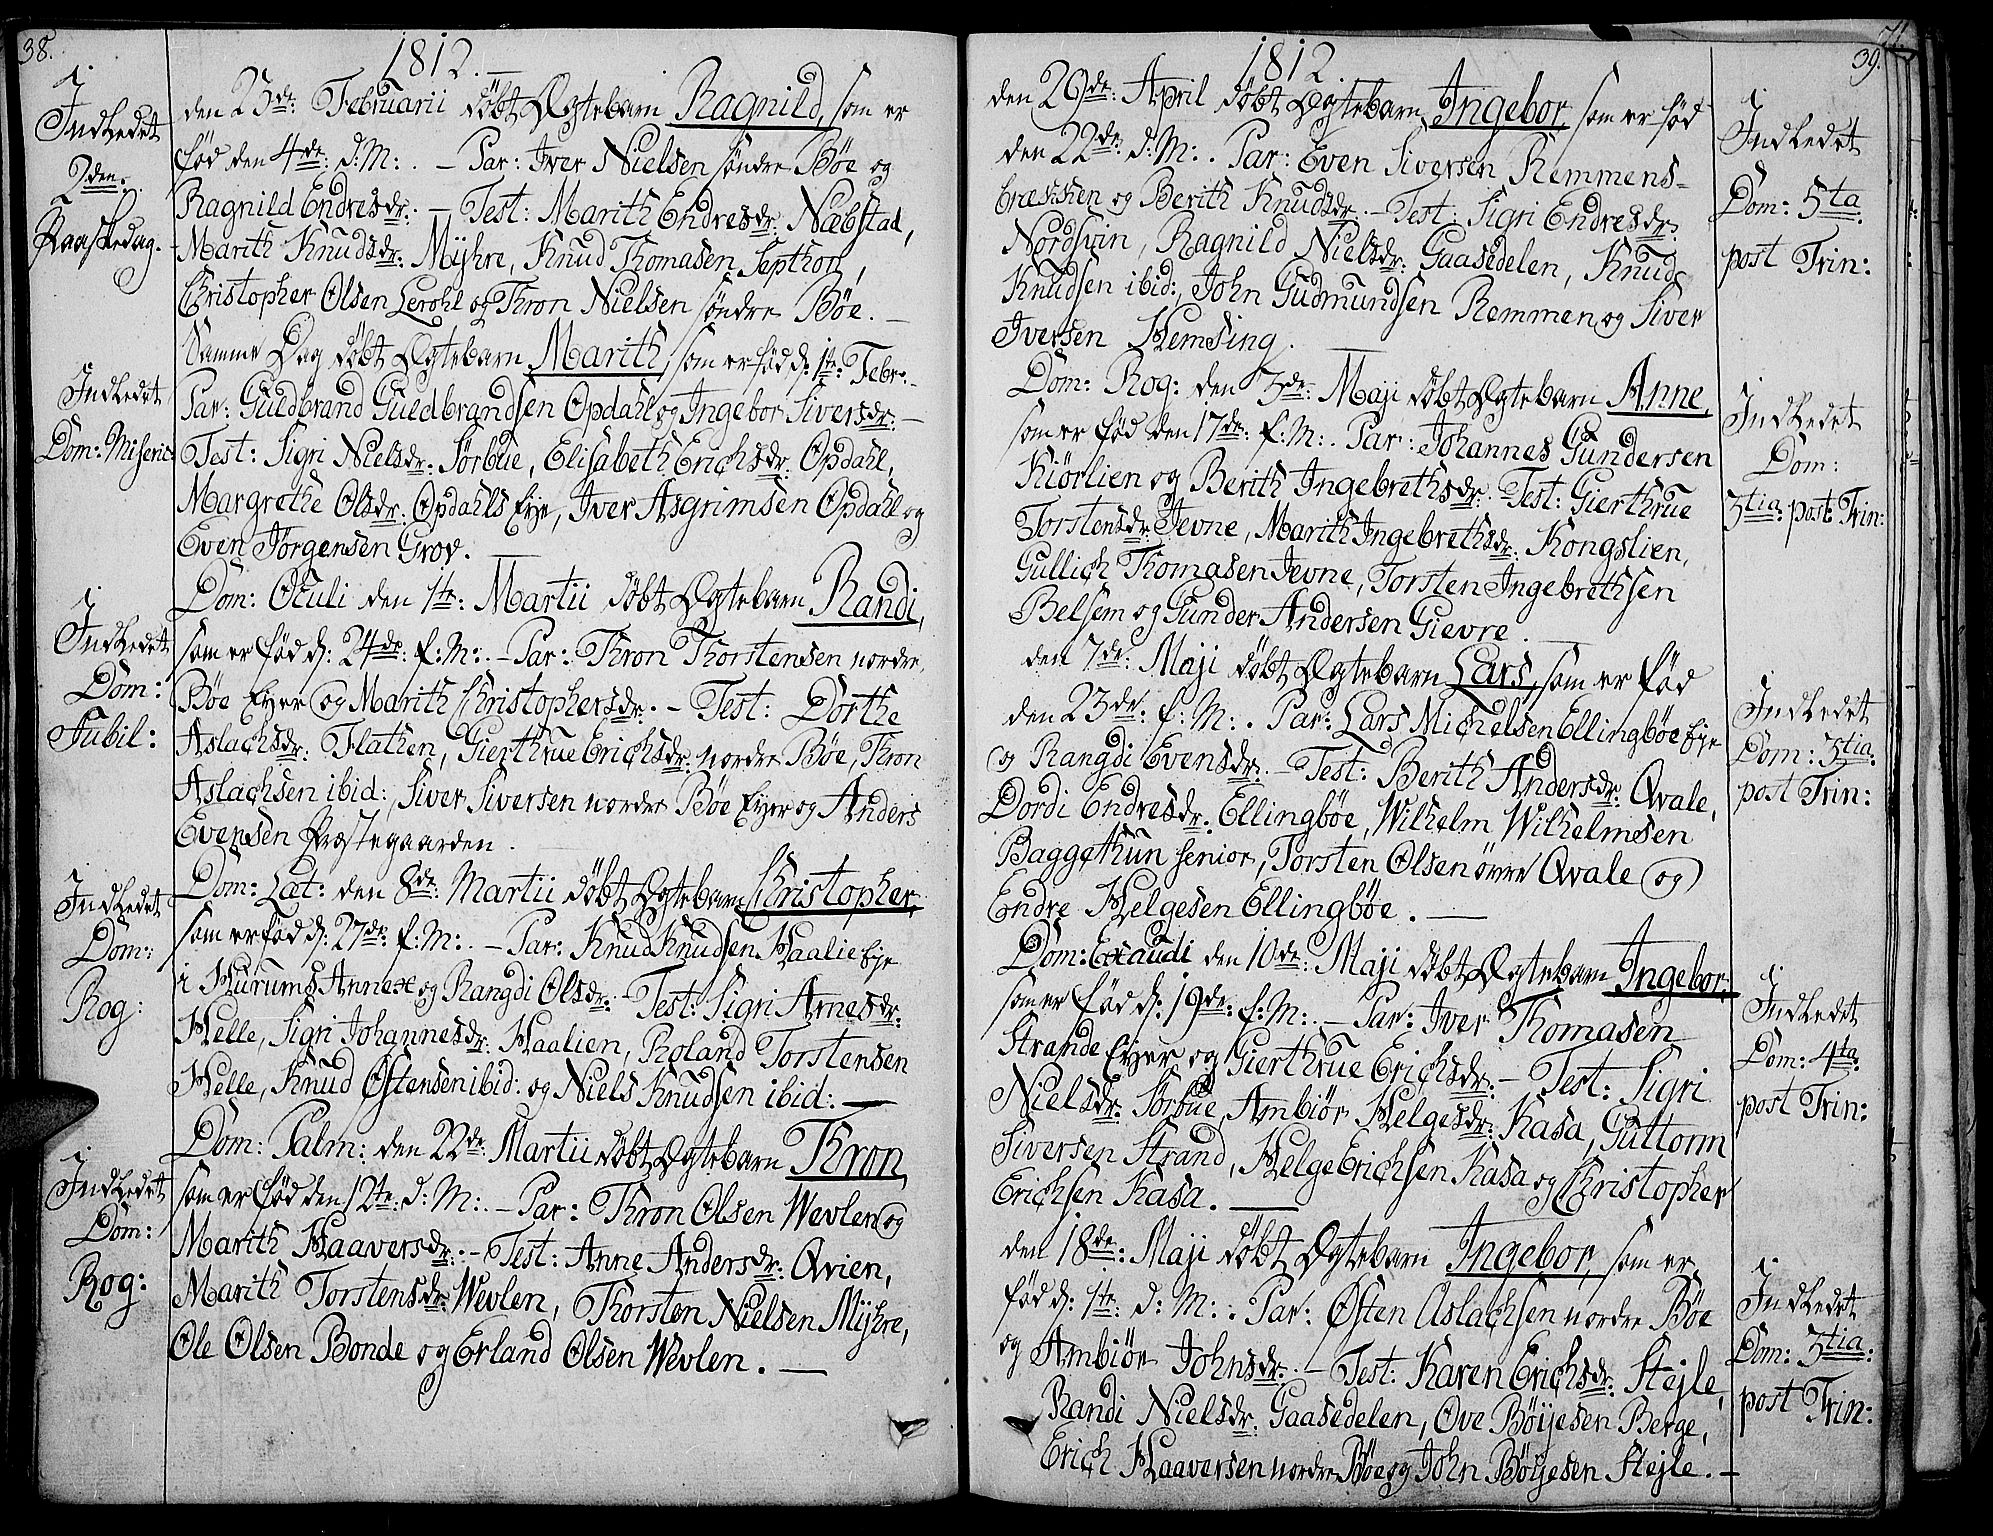 38.
1812.
den 23de: Februarii døbt Ægtebarn Ragnild, som er
fød den 4de: d: M: . – Par: Iver Nielsen søndre Bøe og
Ragnild Endresdr: – Test: Marith Endresdr: Næbstad,
Marith Knudsdr: Myhre, Knud Thomasen Septhon,
Christopher Olsen Lerohl og Thron Nielsen søndre Bøe. –
Indledet
2den
Paaskedag.
Samme Dag døbt Ægtebarn Marith, som er fød d: 1te: Febr: –
Par: Guldbrand Guldbrandsen Opdahl og Ingebor Siversdr: –
Test: Sigri Nielsdr: Sørbue, Elisabeth Erichsdr: Opdahl,
Margrethe Olsdr: Opdahls Eye, Iver Asgrimsen Opdahl og
Even Jørgensen Grov. –
Indledet
Dom: Miseric:
Dom: Oculi den 1te: Martii døbt Ægtebarn Randi,
som er fød d: 24de: f: M: . – Par: Thron Thorstensen nordre
Bøe Eyer og Marith Christophersdr: . – Test: Dorthe
Aslachsdr: Flathen, Gierthrue Erichsdr: nordre Bøe, Thron
Aslachsen ibid:, Siver Siversen nordre Bøe Eyer og Anders
Evensen Præstegaarden.
Indledet
Dom:
Jubil:
Dom: Læt: den 8de: Martii døbt Ægtebarn Christopher,
som er fød d: 27de: f: M: . – Par: Knud Knudsen Haalie Eye
i Hurums Annex og Rangdi Olsdr: – Test: Sigri Arnesdr:
Helle, Sigri Johannesdr: Haalien, Roland Torstensen
Helle, Knud Østensen ibid: og Niels Knudsen ibid: . –
Indledet
Dom:
Rog:
Dom: Palm: den 22de: Martii døbt Ægtebarn Thron,
som er fød den 12te: d: M: . – Par: Thron Olsen Wevlen og
Marith Haaversdr: . – Test: Anne Andersdr: Qvien,
Marith Torstensdr: Wevlen, Thorsten Nielsen Myhre,
Ole Olsen Bonde og Erland Olsen Wevlen. –
Indledet
Dom:
Rog:
39.
1812.
den 29de: April døbt Ægtebarn Ingebor, som er fød
den 22de: d: M: . Par: Even Siversen Remmens-
brækken og Berith Knudsdr: – Test: Sigri Endresdr:
Nordsvin, Ragnild Nielsdr: Gaasedelen, Knud
Knudsen ibid:, John Gudmundsen Remmen og Siver
Iversen Hemsing. –
Indledet
Dom: 5ta
post Trin:
Dom: Rog: den 3de: Maji døbt Ægtebarn Anne,
som er fød den 17de: f: M: . Par: Johannes Gundersen
Kiørlien og Berith Ingebrethsdr: Test: Gierthrue
Torstensdr: Jevne, Marith Ingebrethsdr: Kongslien,
Gullich Thomasen Jevne, Torsten Ingebrethsen
Belsem og Gunder Andersen Gievre. –
Indledet
Dom:
3tia: post Trin:
den 7de: Maji døbt Ægtebarn Lars, som er fød
den 23de: f: M: . Par: Lars Michelsen Ellingbøe Eye
og Rangdi Evensdr: – Test: Berith Andersdr: Qvale,
Dordi Endresdr: Ellingbøe, Wilhelm Wilhelmsen
Baggethun senior, Torsten Olsen øvre Qvale og
Endre Helgesen Ellingbøe. –
Indledet
Dom: 3tia:
post Trin:
Dom: Exaudi den 10de: Maji døbt Ægtebarn Ingebor,
som er fød d: 19de: f: M: . – Par: Iver Thomasen
Strande Eyer og Gierthrue Erichsdr: – Test: Sigri
Nielsdr: Sørbue, Ambiør Helgesdr: Kasa, Guttorm
Siversen Strand, Helge Erichsen Kasa og Christopher
Erichsen Kasa. –
Indledet
Dom: 4ta:
post Trin:
den 18de: Maji døbt Ægtebarn Ingebor, som er
fød d: 1te: d: M: . Par: Østen Aslachsen nordre Bøe
og Ambiør Johnsdr: . – Test: Karen Erichsdr: Stejle,
Randi Nielsdr: Gaasedelen, Ove Bøyesen Berge,
Erich Haaversen nordre Bøe og John Bøyesen Stejle. –
Indledet
Dom: 3tia:
post Trin: